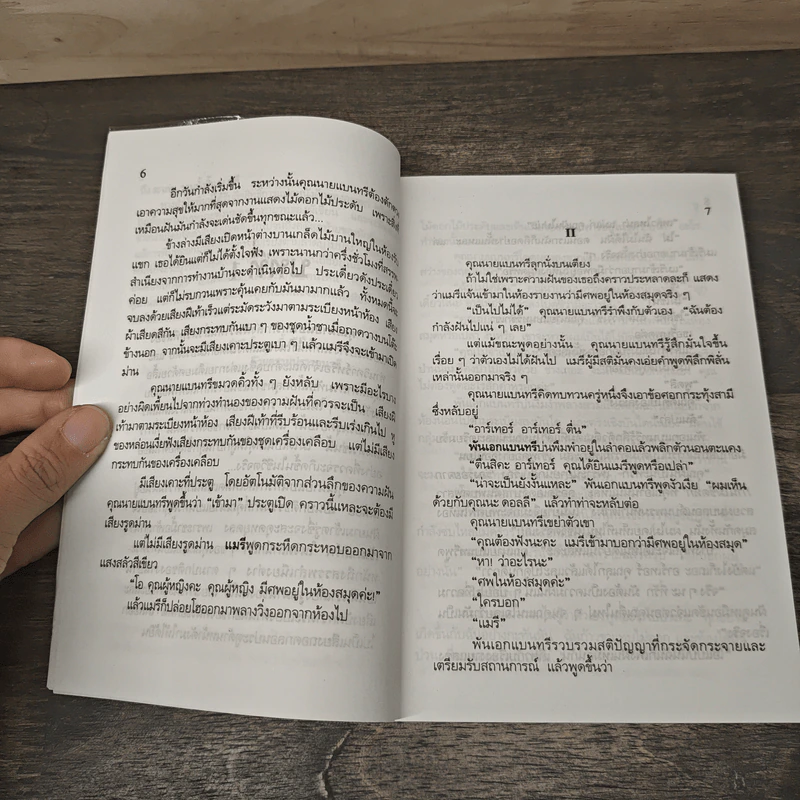 6
อีกวันกำลังเริ่มขึ้น ระหว่างนั้นคุณนายแบนทรีต้องตักตวง
เอาความสุขให้มากที่สุดจากงานแสดงไม้ดอกไม้ประดับ เพราะ
เหมือนฝันมันกำลังจะเด่นชัดขึ้นทุกขณะแล้ว...
ข้างล่างมีเสียงเปิดหน้าต่างบานเกล็ดไม้บานใหญ่ในห้องรับ
แขก เธอได้ยินแต่ก็ไม่ได้ตั้งใจฟัง เพราะนานกว่าครึ่งชั่วโมงที่
สำเนียงจากการทำงานบ้านจะดำเนินต่อไป ประเดี๋ยวดังประเดี๋ยว
ค่อย แต่ก็ไม่รบกวนเพราะคุ้นเคยกับมันมามากแล้ว ทั้งหมดนี้จะ
จบลงด้วยเสียงฝีเท้าเร็วแต่ระมัดระวังมาตามระเบียงหน้าห้อง เสียง
ผ้าเสียดสีกัน เสียงกระทบกันเบา ๆ ของชุดน้ำชาเมื่อถาดวางบนโต๊ะ
ข้างนอก จากนั้นจะมีเสียงเคาะประตูเบา ๆ แล้วแมรีจึงจะเข้ามาเปิด
ม่าน
คุณนายแบนทรีขมวดคิ้วทั้ง ๆ ยังหลับ เพราะมีอะไรบาง
อย่างผิดเพี้ยนไปจากท่วงทำนองของความฝันที่ควรจะเป็น เสียงฝี
เท้ามาตามระเบียงหน้าห้อง เสียงฝีเท้าที่รีบร้อนและรีบเร่งเกินไป หู
ของหล่อนเงี่ยฟังเสียงกระทบกันของชุดเครื่องเคลือบ แต่ไม่มีเสียง
กระทบกันของเครื่องเคลือบ
มีเสียงเคาะที่ประตู โดยอัตโนมัติจากส่วนลึกของความฝัน
คุณนายแบนทรีพูดขึ้นว่า “เข้ามา” ประตูเปิด คราวนี้แหละจะต้องมี
เสียงรูดม่าน
แต่ไม่มีเสียงรูดม่าน แมรีพูดกระหืดกระหอบออกมาจาก
แสงสลัวสีเขียว
“โอ คุณผู้หญิงคะ คุณผู้หญิง มีศพอยู่ในห้องสมุดค่ะ!”
แล้วแมรีก็ปล่อยโฮออกมาพลางวิ่งออกจากห้องไป
7
II
คุณนายแบนทรีลุกนั่งบนเตียง
ถ้าไม่ใช่เพราะความฝันของเธอถึงคราวประหลาดละก็ แสดง
ว่าแมรีแจ้นเข้ามาในห้องรายงานว่ามีศพอยู่ในห้องสมุดจริง ๆ
“เป็นไปไม่ได้” คุณนายแบนทรีรำพึงกับตัวเอง “ฉันต้อง
กำลังฝันไปแน่ ๆ เลย”
แต่แม้ขณะพูดอย่างนั้น คุณนายแบนทรีรู้สึกมั่นใจขึ้น
เรื่อย ๆ ว่าตัวเองไม่ได้ฝันไป แมรีผู้มีสติมั่นคงเอ่ยคำพูดพิลึกพิลั่น
เหล่านั้นออกมาจริง ๆ
คุณนายแบนทรีคิดทบทวนครู่หนึ่งจึงเอาข้อศอกกระทุ้งสามี
ซึ่งหลับอยู่
“อาร์เทอร์ อาร์เทอร์ ตื่น”
พันเอกแบนทรีบ่นพึมพำอยู่ในลำคอแล้วพลิกตัวนอนตะแคง
“ตื่นสิคะ อาร์เทอร์ คุณได้ยินแมรีพูดหรือเปล่า”
“น่าจะเป็นยังงั้นแหละ” พันเอกแบนทรีพูดงัวเงีย “ผมเห็น
ด้วยกับคุณนะ ดอลลี” แล้วทำท่าจะหลับต่อ
คุณนายแบนทรีเขย่าตัวเขา
“คุณต้องฟังนะคะ แมรีเข้ามาบอกว่ามีศพอยู่ในห้องสมุด”
“หา! ว่าอะไรนะ”
“ศพในห้องสมุดค่ะ”
“ใครบอก”
“แมรี”
พันเอกแบนทรีรวบรวมสติปัญญาที่กระจัดกระจายและ
เตรียมรับสถานการณ์ แล้วพูดขึ้นว่า